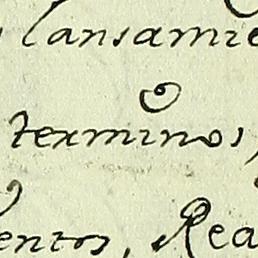 lansamie
terminos,
entos, Rea